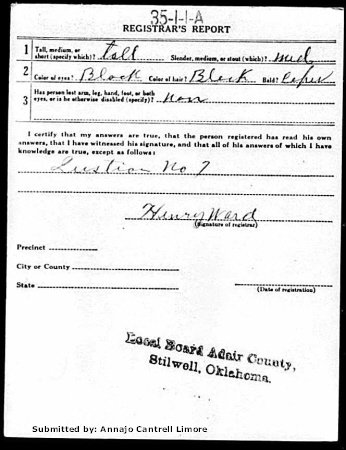 35-1-1-A
REGISTRAR'S REPORT
1 Tall, medium, or short (specify which)? tall Slender, medium, or stout (which)? med
2 Color of eyes? Black Color of hair? Black Bald?
3 Has person lost arm, leg, hand, foot, or both
eyes, or is he otherwise disabled (specify)? non
I certify that my answers are true, that the person registered has read his own
answers, that I have witnessed his signature, and that all of his answers of which I have
knowledge are true, except as follows:
No 7
Henry Ward
(Signature of registrar)
Precinct
City or County
State
(Date of registration)
Local Board Adair County,
Stilwell, Oklahoma.
Submitted by: Annajo Cantrell Limore